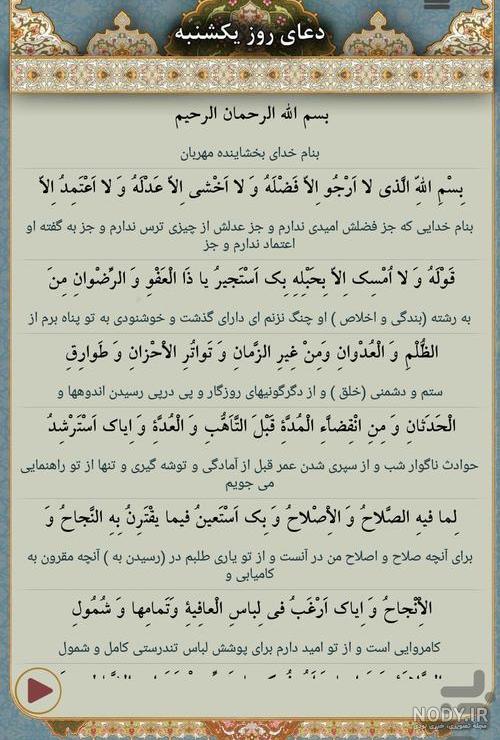 دعای روز یکشنبه
بسم الله الرحمان الرحیم
بنام خدای بخشاینده مهربان
بِسْمِ اللهِ الَّذى لا اَرْجُو اِلاّ فَضْلَهُ وَ لا اَخْشى اِلاّ عَدْلَهُ وَ لا اَعْتَمِدُ اِلاّ
بنام خدایی که جز فضلش امیدی ندارم و جز عدلش از چیزی ترس ندارم و جز به گفته او
اعتماد ندارم و جز
قَوْلَهُ وَ لا اُمْسِک اِلاّ بِحَبْلِهِ بِک اَسْتَجیرُ یا ذَا الْعَفْوِ وَ الرِّضْوانِ مِنَ
به رشته (بندگی و اخلاص ) او چنگ نزنم ای دارای گذشت و خوشنودی به تو پناه برم از
الظُّلْمِ وَ الْعُدْوانِ وَمِنْ غِیَرِ الزَّمانِ وَ تَواتُرِ الْاَحْزانِ وَ طَوارِقِ
ستم و دشمنی (خلق ) و از دگرگونیهای روزگار و پی درپی رسیدن اندوهها و
الْحَدَثانِ وَ مِنِ انْقِضاَّءِ الْمُدَّةِ قَبْلَ التَّاَهُّبِ وَ الْعُدَّةِ وَ اِیاک اَسْتَرْشِدُ
حوادث ناگوار شب و از سپری شدن عمر قبل از آمادگی و توشه گیری و تنها از تو راهنمایی
می جویم
لِما فیهِ الصَّلاحُ وَ الْاِصْلاحُ وَ بِک اَسْتَعینُ فیما یقْتَرِنُ بِهِ النَّجاحُ وَ
برای آنچه صلاح و اصلاح من در آنست و از تو یاری طلبم در (رسیدن به ) آنچه مقرون به
کامیابی و
الْاِنْجاحُ وَ اِیاک اَرْغَبُ فى لِباسِ الْعافِیةِ وَتَمامِها وَ شُمُولِ
کامروایی است و از تو امید دارم برای پوشش لباس تندرستی کامل و شمول
NODY.IR